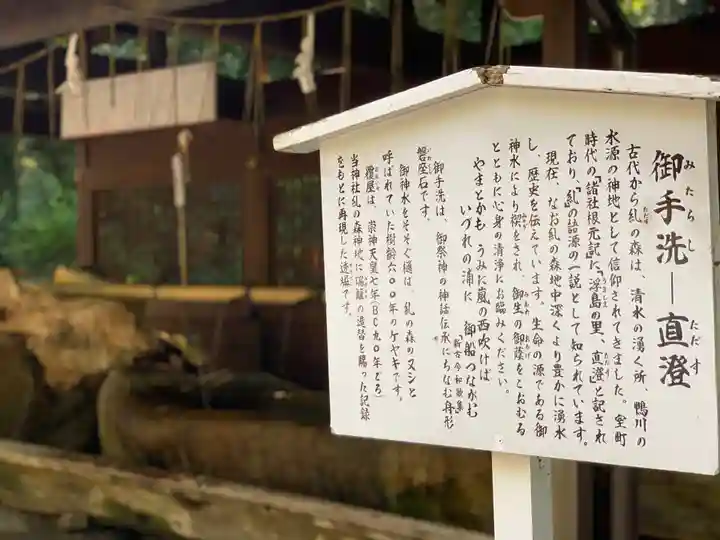 御手洗―直澄
みたらし
ただす
古代から糺の森は、清水の湧く所、鴨川の
ただす
水源の神地として信仰されてきました。室町
時代の「諸社根元記」に、「浮島の里、直澄」と記され
うきしま
ただす
ており、「糺」の語源の一説として知られています。
現在、なお糺の森地中深くより豊かに湧水
し、歴史を伝えています。生命の源である御
神水により禊をされ、御生の御蔭をこおむる
みそぎ
みあれ
みかげ
とともに心身の清浄にお臨みください。
やまとかも うみに嵐の西吹けば
いづれの浦に 御船つながむ
新古今和歌集
御手洗は、御祭神の神話伝承にちなむ舟形
磐座石です。
いわくら
御神水をそそぐ樋は、糺の森のヌシと
呼ばれていた樹齢六〇〇年のケヤキです。
覆屋は、崇神天皇七年(BC九〇年ごろ)
当神社糺の森神地に瑞籬の造替を賜った記録
をもとに再現した遺構です。